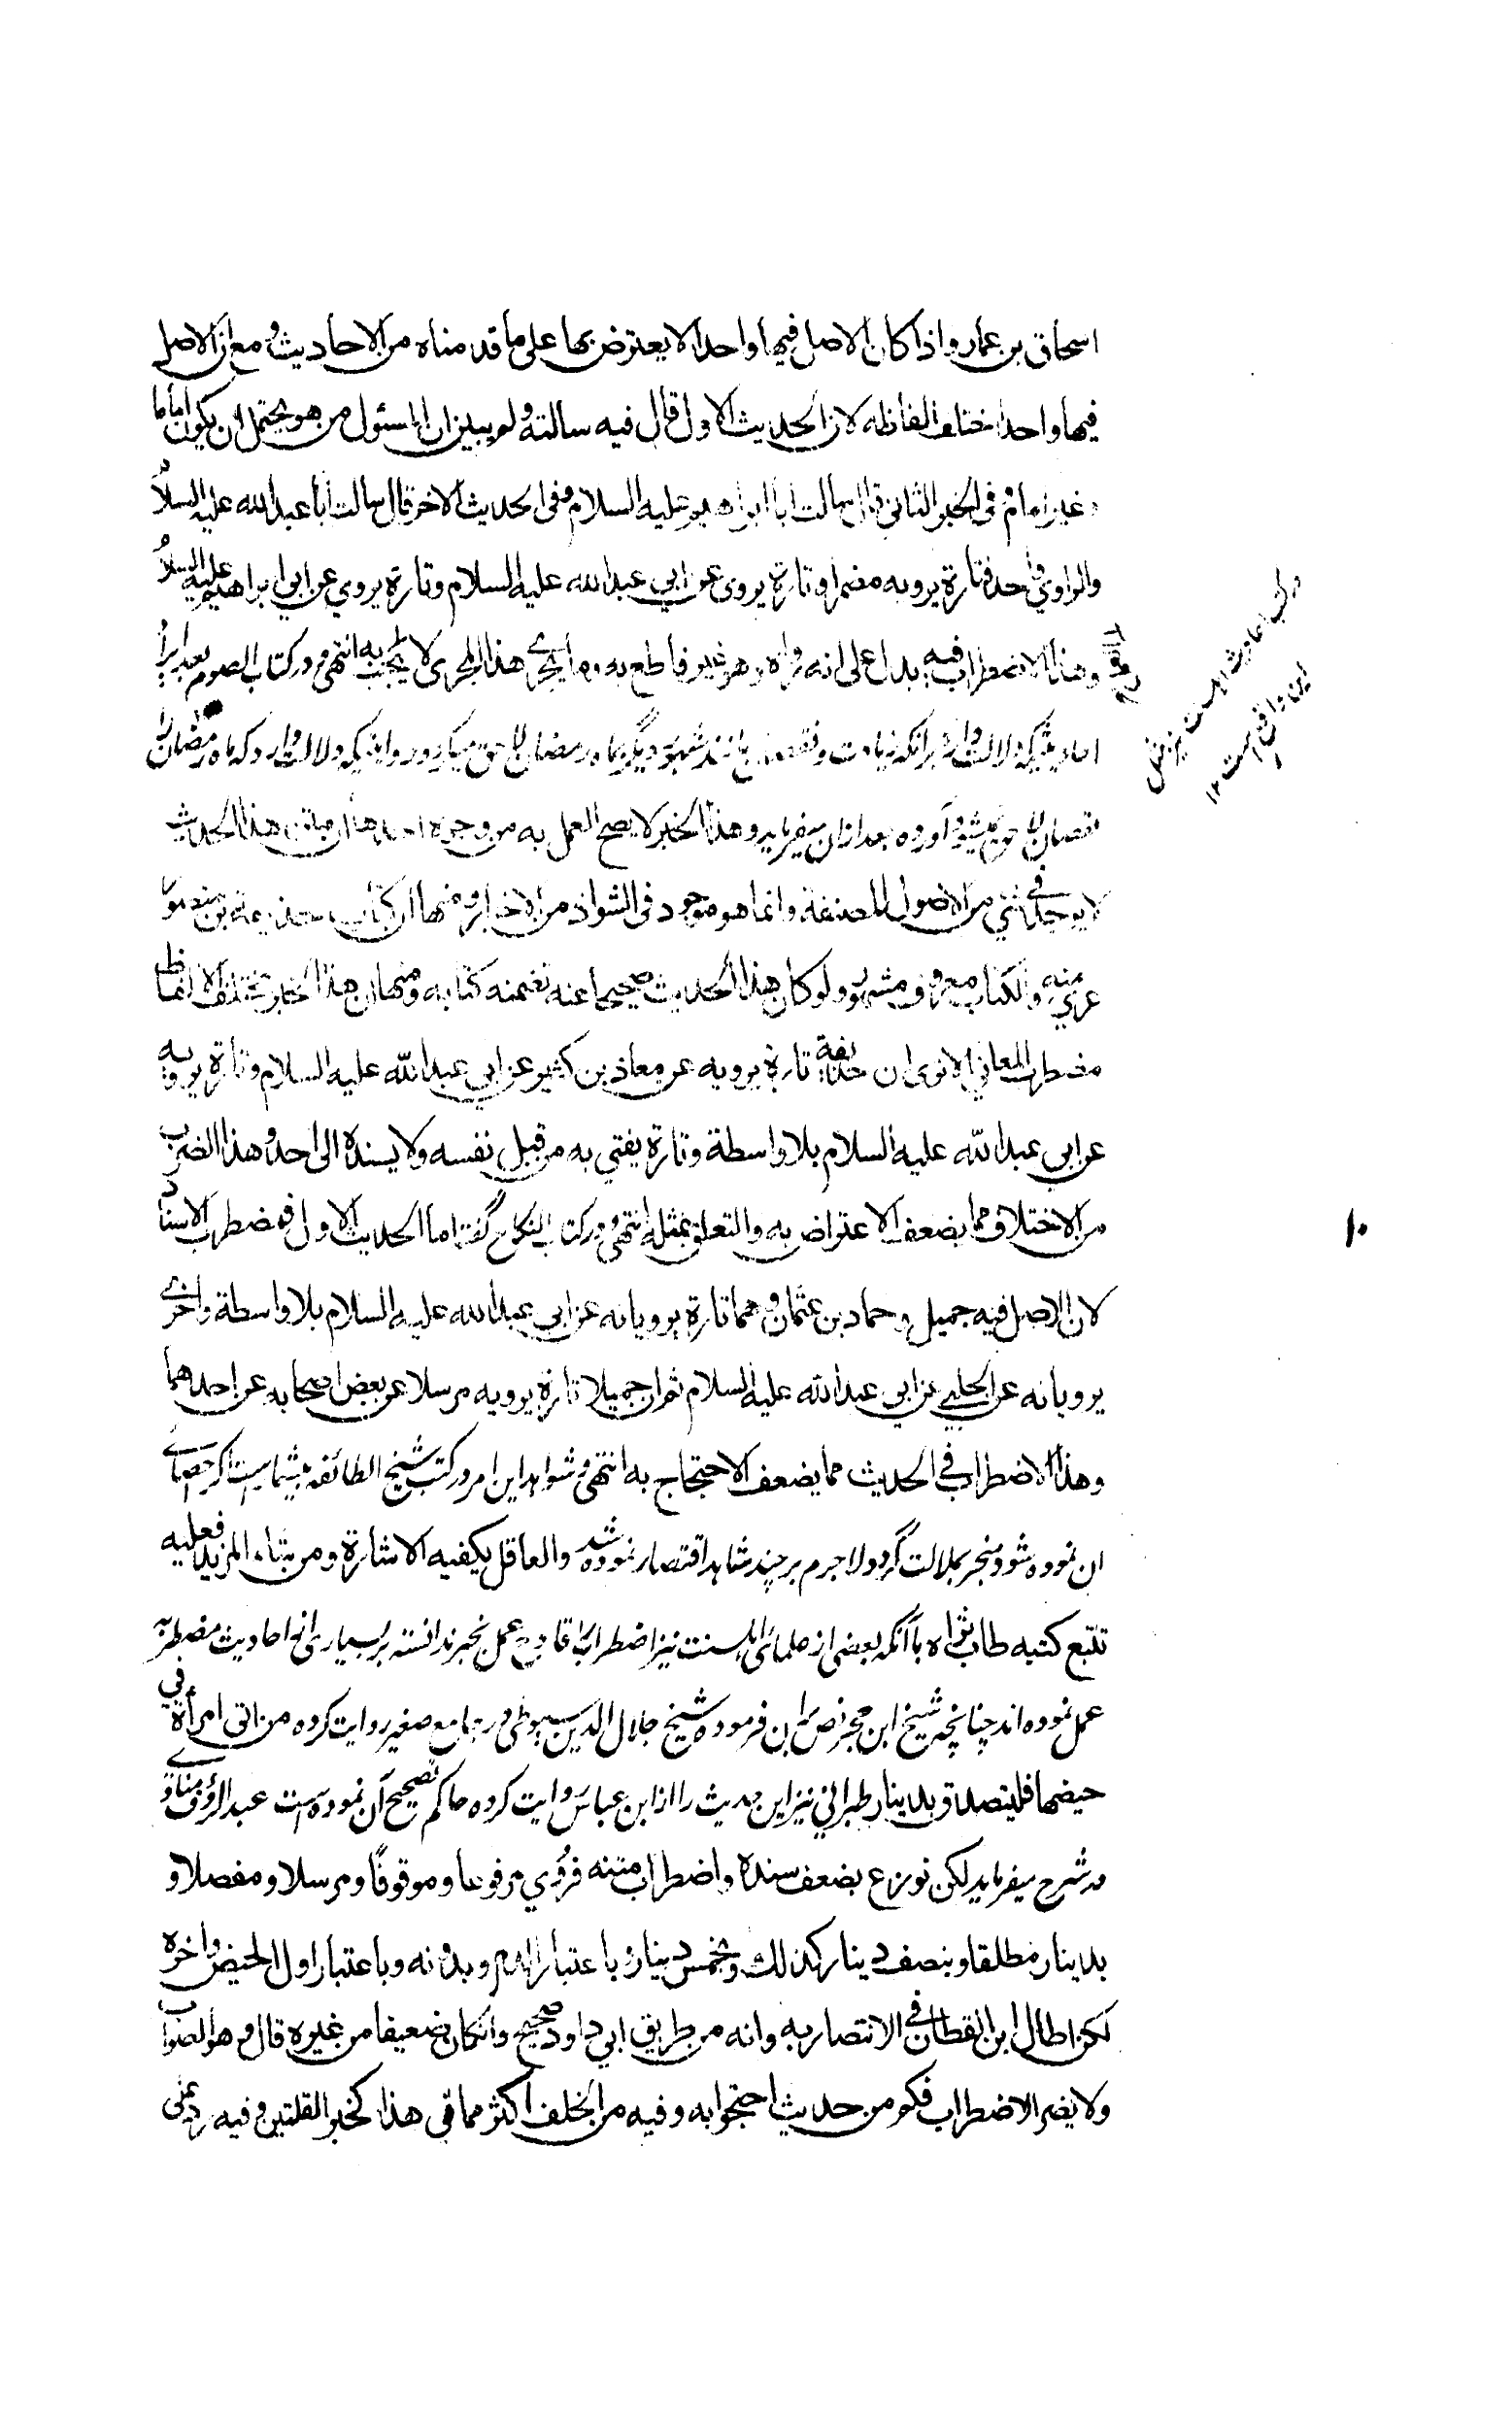 اسحاق بن عمار واذا كان الاصل فيها واحدا لا يعترض بها على ما قدمناه من الاحاديث ومع ان الاصل
فيها واحدا اختلف الفاظه لان الحديث الاول قال فيه سالته ولم يبين ان المسئول من هو يحتمل ان يكون اماما
وغير امام وفى الخبر الثانى قال سالت ابا ابراهيم عليه السلام وفى الحديث الاخر قال سالت ابا عبد الله عليه السلام
والراوي واحد فتارة يرويه مضمرا وتارة يروى عن ابي عبد الله عليه السلام وتارة يروي عن ابي ابراهيم عليه السلام
وهذا الاضطراب فيه يدل على انه رواه وهو غير قاطع به وما يجري هذا المجرى لا يجب به انتهى ودر كتاب الصوم بعد ايراد
احاديثيكه دلالت دارد برانكه زيادت ونقصان مانند شهور ديگر بماه رمضان لاحق ميگردد وانيكه دلالت دارد كه ماه رمضان را
نقصان لاحق نميشود آورده بعد ازان ميفرمايد وهذا الخبر لا يصح العمل به من وجوه احدها ان متن هذا الحديث
لا يوجد في شئ من الاصول المصنفة وانما هو موجود فى الشواذ من الاخبار ومنها ان كتاب حذيفة بن منصور
عري منه والكتاب معروف مشهور ولو كان هذا الحديث صحيحا عنه تضمنه كتابه ومنها ان هذا الخبر مختلف الالفاظ
مضطرب المعانى الا ترى ان حذيفة تارة يرويه عن معاذ بن كثير عن ابي عبد الله عليه السلام وتارة يرويه
عن ابي عبد الله عليه السلام بلا واسطة وتارة يفتي به من قبل نفسه ولا يسنده الى احد وهذا الضرب
من الاختلاف مما يضعف الاعتراض به والتعلق بمثله انتهى ودر كتاب النكاح گفته اما الحديث الاول فمضطرب الاسناد
لان الاصل فيه جميل وحماد بن عثمان وهما تارة يرويانه عن ابي عبد الله عليه السلام بلا واسطة واخرى
يرويانه عن الحلبي عن ابي عبد الله عليه السلام ثم ان جميلا تارة يرويه مرسلا عن بعض اصحابه عن احدهما
وهذا الاضطراب في الحديث مما يضعف الاحتجاج به انتهى وشواهد اين امر در كتب شيخ الطائفة بيشمارست اگر احصاى
ان نموده شود منجر بملالت گردد لاجرم بر چند شاهد اقتصار نموده شد والعاقل يكفيه الاشارة ومن شاء المزيد فعليه
تتبع كتبه طاب ثراه با آنكه بعضى از علماى اهل سنت نيز اضطراب را قادح عمل بخبر ندانسته بر بسيارى از احاديث مضطربه
عمل نموده اند چنانچه شيخ ابن حجر نص بران فرموده شيخ جلال الدين سيوطى در جامع صغير روايت كرده من اتى امرأة في
حيضها فليتصدق بدينار طبراني نيز اين حديث را از ابن عباس روايت كرده حاكم تصحيح آن نموده است عبد الرؤف مناوي
در شرح ميفرمايد لكن نوزع بضعف سنده واضطراب متنه فروي مرفوعا وموقوفا ومرسلا ومفصلا و
بدينار مطلقا وبنصف دينار كذلك وبخمس دينار وباعتبار الدم وبدونه وباعتبار اول الحيض واخره
لكن اطال ابن القطان في الانتصار به وانه من طريق ابي داود صحيح وان كان ضعيفا من غيره قال وهو الصواب
ولا يضر الاضطراب فكم من حديث احتجوا به وفيه من الخلف اكثر مما في هذا كخبر القلتين وفيه رد
در كتب احاديث اهل سنت نيز
اين واقع است ١٢
١٠